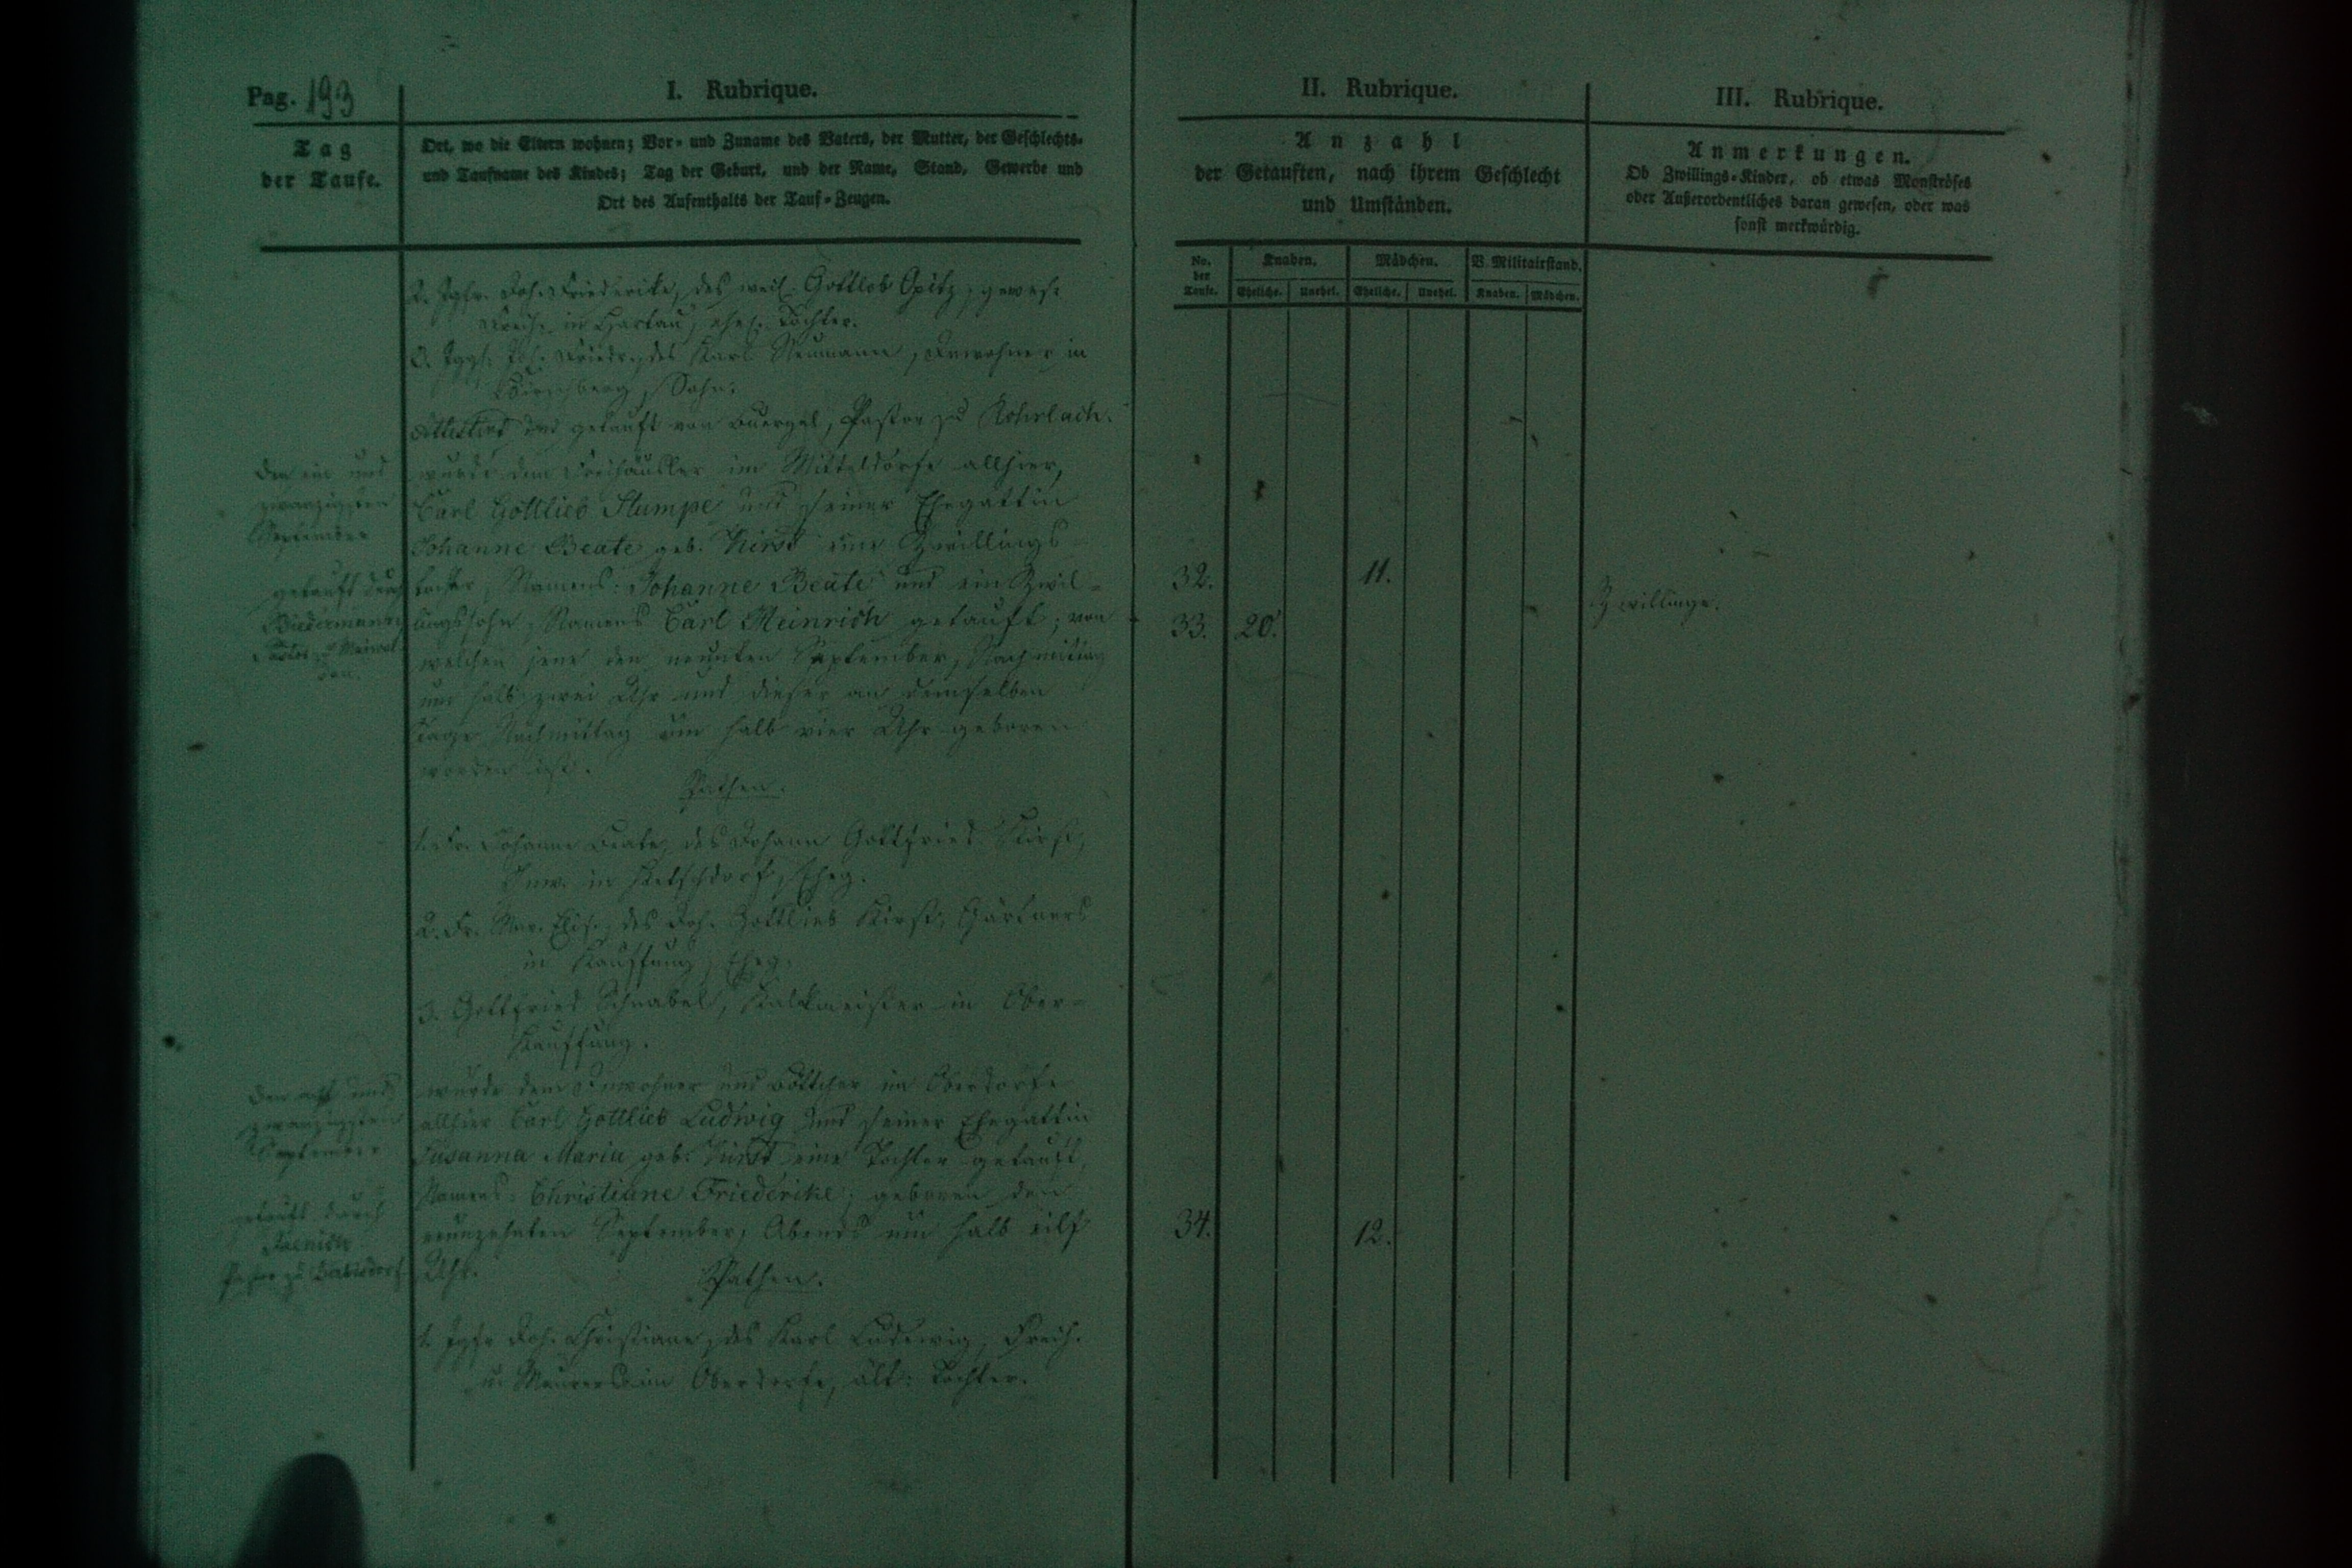 Pag. 193
I. Rubrique.
Tag
der Taufe.
Ort, wo die Eltern wohnen; Vor- und Zuname des Vaters, der Mutter, der Geschlechts-
und Taufname des Kindes; Tag der Geburt, und der Name, Stand, Gewerbe und
Ort des Aufenthalts der Tauf-Zeugen.
2. Jgfr. Joh. Friederike, des weil. Gottlob Opitz, gewes.
in Hartau, ehel. Tochter.
3. Jggs. Joh. Friedr., des Karl Neumann, Inwohner in
Hirschberg, Sohn.
getauft von Buergel, Pastor zu Rohrlach.
Den ein und
zwanzigsten
September
getauft durch
Biedermann
wurde dem Freihäusler im Mitteldorfe allhier,
Carl Gottlieb Stumpe und seiner Ehegattin
Johanne Beate geb. Kirst eine Zwillings-
tochter, Namens: Johanne Beate und ein Zwil-
lingssohn, Namens Carl Heinrich getauft; von
welchen jene den neunten September, Nachmittag
um halb zwei Uhr und dieser an demselben
Tage Nachmittag um halb vier Uhr geboren
worden ist.
Pathen.
1. Fr. Johanne Beate, des Johann Gottfried Kirst,
Inw. in Ketschdorf, Eheg.
2. Fr. Mar. Elis., des Joh. Gottlieb Kirst, Gärtners
in Kauffung, Eheg.
3. Gottfried Schnabel, Kalkmeister in Ober-
Kauffung.
Den acht und
zwanzigsten
September
getauft durch
Pastor zu
wurde dem Inwohner und Böttcher im Oberdorfe
allhier Carl Gottlieb Ludwig und seiner Ehegattin
Susanna Maria geb. Kirst eine Tochter getauft,
Namens: Christiane Friederike; geboren den
neunzehnten September, Abends um halb eilf
Uhr.
Pathen.
1. Jgfr. Joh. Christiane, des Karl Ludwig, Freih.
u. Maurers im Oberdorfe, ält. Tochter.
II. Rubrique.
Anzahl
der Getauften, nach ihrem Geschlecht
und Umständen.
No. der Taufe.
Knaben. Mädchen. V. Militairstand.
Eheliche. Unehel. Eheliche. Unehel. Knaben. Mädchen.
32. 11.
33. 20.
34. 12.
III. Rubrique.
Anmerkungen.
Ob Zwillings-Kinder, ob etwas Monströses
oder Außerordentliches daran gewesen, oder was
sonst merkwürdig.
Zwillinge.